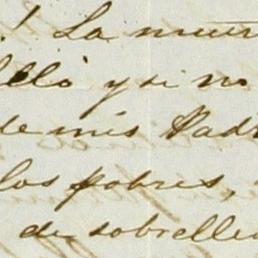 ! La muer
lló y si no
de mis Padr
los pobres,
de sobrelle